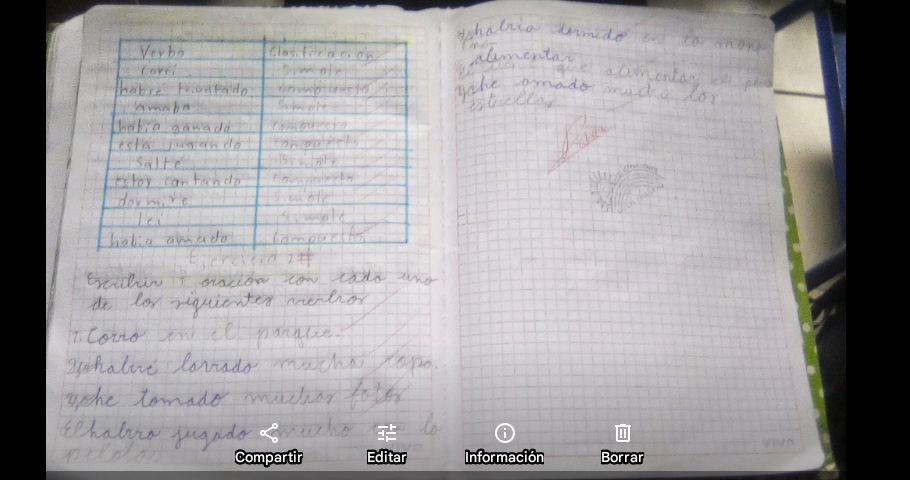 Verbo Clasificación
Corri Simple
habre triunfado compuesto
amaba Simple
había ganado compuesto
está jugando compuesto
Salté Simple
estoy cantando compuesto
dormiré Simple
lei Simple
habia amado Compuesto
Ejercicio
Escribir 1 oracion con cada uno
de los siguientes verbos
1. Corro en el parque.
habré lavado mucha ropa.
yo he tomado muchas fotos
El habra jugado mucho la
pelota.
habria dormido en la
alimentar
que alimentar el
yo he amado mucho las
estrellas
Compartir
Editar
Información
Borrar